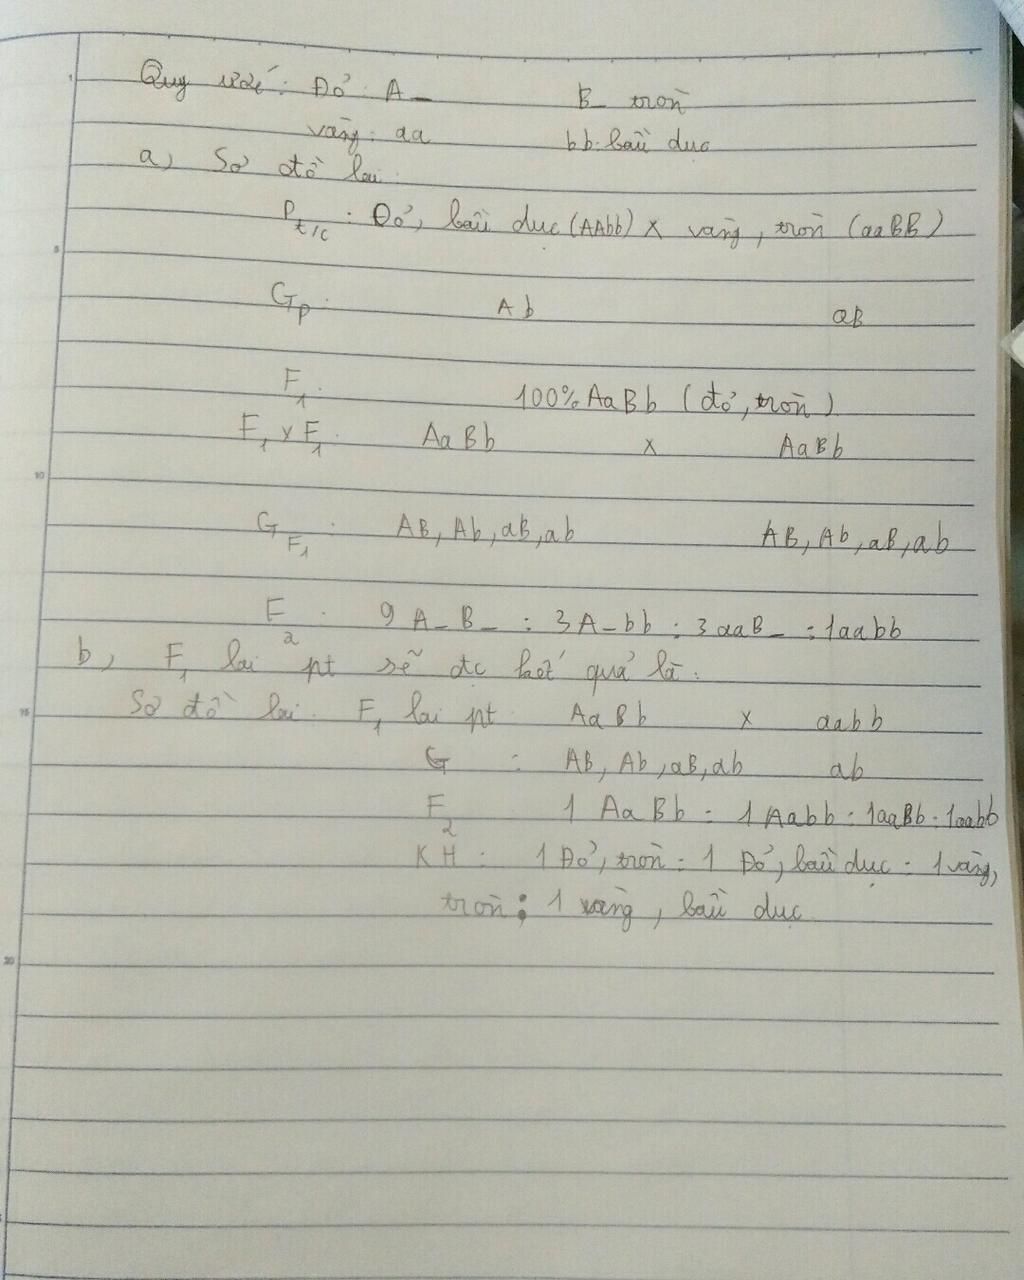 Quy ước: Đỏ: A_ B_ tròn
vàng: aa bb: bầu dục
a, Sơ đồ lai:
Pt/c: Đỏ, bầu dục (AAbb) x vàng, tròn (aaBB)
Gp: Ab aB
F1: 100% AaBb (đỏ, tròn)
F1 x F1: AaBb x AaBb
GF1: AB, Ab, aB, ab AB, Ab, aB, ab
F2: 9 A_B_ : 3A_bb : 3 aaB_ : 1aabb
b, F1 lai pt sẽ đc kết quả là:
Sơ đồ lai: F1 lai pt: AaBb x aabb
G : AB, Ab, aB, ab ab
F2 1 AaBb : 1 Aabb : 1aaBb : 1aabb
KH: 1 Đỏ, tròn : 1 Đỏ, bầu dục : 1 vàng,
tròn : 1 vàng, bầu dục